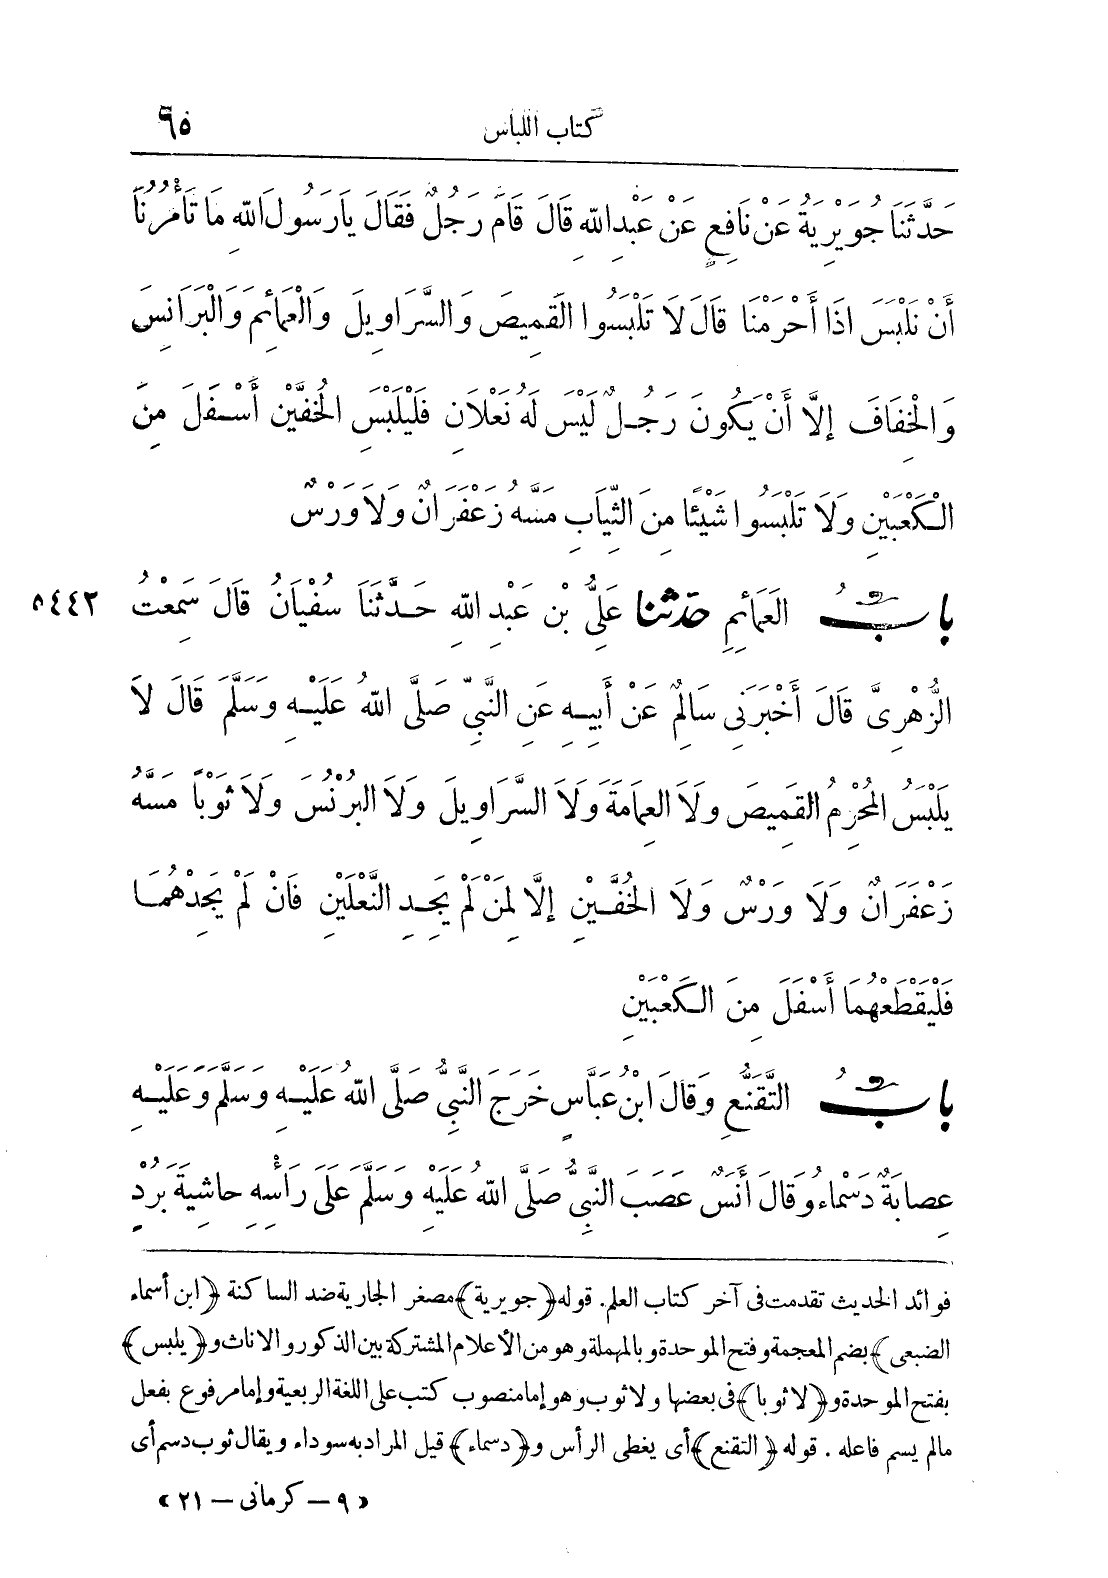 كتاب اللباس ٦٥
حَدَّثَنَا جُوَيْرِيَةُ عَنْ نَافِعٍ عَنْ عَبْدِ اللهِ قَالَ قَامَ رَجُلٌ فَقَالَ يَا رَسُولَ اللهِ مَا تَأْمُرُنَا
أَنْ نَلْبَسَ اذَا أَحْرَمْنَا قَالَ لَا تَلْبَسُوا القَمِيصَ وَالسَّرَاوِيلَ وَالْعَمَائِمَ وَالْبَرَانِسَ
وَالْخِفَافَ إِلَّا أَنْ يَكُونَ رَجُلٌ لَيْسَ لَهُ نَعْلَانِ فَلْيَلْبَسِ الْخُفَّيْنِ أَسْفَلَ مِنَ
الْكَعْبَيْنِ وَلَا تَلْبَسُوا شَيْئًا مِنَ الثِّيَابِ مَسَّهُ زَعْفَرَانٌ وَلَا وَرْسٌ
بابُ العَمَائِمِ حدثنا عَلِيُّ بْنُ عَبْدِ اللهِ حَدَّثَنَا سُفْيَانُ قَالَ سَمِعْتُ ٥٤٤٢
الزُّهْرِىَّ قَالَ أَخْبَرَنِى سَالِمٌ عَنْ أَبِيهِ عَنِ النَّبِىِّ صَلَّى اللهُ عَلَيْهِ وَسَلَّمَ قَالَ لَا
يَلْبَسُ الْمُحْرِمُ القَمِيصَ وَلَا العِمَامَةَ وَلَا السَّرَاوِيلَ وَلَا البُرْنُسَ وَلَا ثَوْبًا مَسَّهُ
زَعْفَرَانٌ وَلَا وَرْسٌ وَلَا الْخُفَّيْنِ إِلَّا لِمَنْ لَمْ يَجِدِ النَّعْلَيْنِ فَانْ لَمْ يَجِدْهُمَا
فَلْيَقْطَعْهُمَا أَسْفَلَ مِنَ الْكَعْبَيْنِ
بابُ التَّقَنُّعِ وَقَالَ ابْنُ عَبَّاسٍ خَرَجَ النَّبِىُّ صَلَّى اللهُ عَلَيْهِ وَسَلَّمَ وَعَلَيْهِ
عِصَابَةٌ دَسْمَاءُ وَقَالَ أَنَسٌ عَصَبَ النَّبِىُّ صَلَّى اللهُ عَلَيْهِ وَسَلَّمَ عَلَى رَأْسِهِ حَاشِيَةَ بُرْدٍ
فوائد الحديث تقدمت فى آخر كتاب العلم. قوله ﴿جويرية﴾ مصغر الجارية ضد الساكنة ﴿ابن أسماء
الضبعى﴾ بضم المعجمة وفتح الموحدة وبالمهملة وهو من الأعلام المشتركة بين الذكور والاناث و﴿يلبس﴾
بفتح الموحدة و﴿لا ثوبا﴾ فى بعضها ولا ثوب وهو إما منصوب كتب على اللغة الربعية وإما مرفوع بفعل
مالم يسم فاعله. قوله ﴿التقنع﴾ أى يغطى الرأس و﴿دسماء﴾ قيل المراد به سوداء ويقال ثوب دسم أى
«٩ – كرمانى – ٢١»